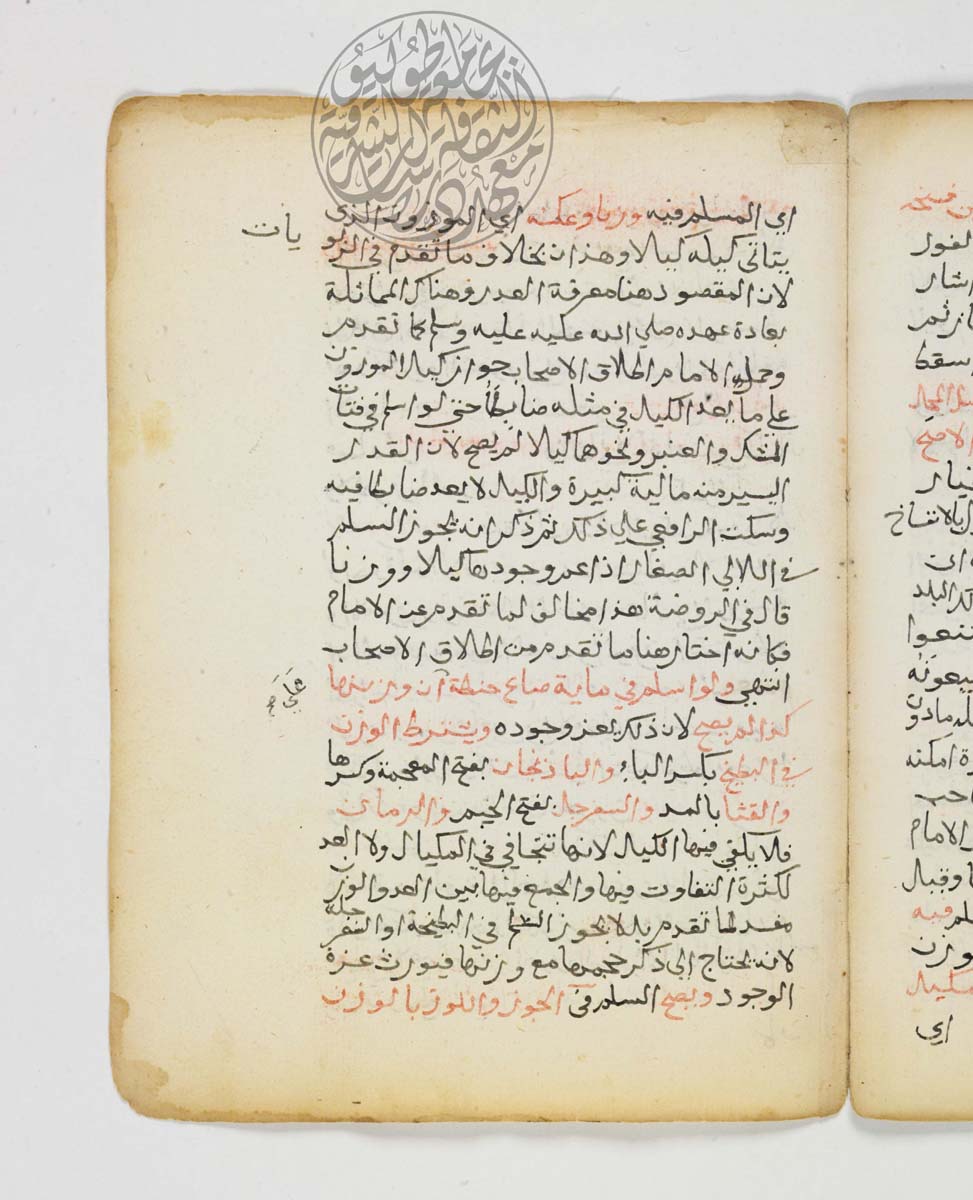 اي المسلم فيه وزنا وعكسه اي الموزون الذي
يتاتى كيله كيلا وهذا بخلاف ما تقدم في الربو
يات
لان المقصود هنا معرفة القدر وهناك المماثلة
بعادة عهده صلي الله عليه عليه وسلم كما تقدم
وحمل الامام اطلاق الاصحاب جواز كيل الموزون
علي ما يعد الكيل في مثله ضابطا حتي لو اسلم في فتات
المسك والعنبر ونحوهما كيلا لم يصح لان القدر
اليسير منه مالية كبيرة والكيل لا يعد ضابطا فيه
وسكت الرافعي علي ذلك ثم ذكر انه يجوز السلم
في اللالي الصغار اذا عم وجودها كيلا ووزنا
قال في الروضة هذا مخالف لما تقدم عن الامام
فكانه اختار هنا ما تقدم من اطلاق الاصحاب
انتهي ولو اسلم في ماية صاع حنطة ان وزنها
كذا لم يصح لان ذلك يعز وجوده ويشترط الوزن
في البطيخ بكسر الباء والباذنجان بفتح المعجمة وكسرها
والقثا بالمد والسفرجل بفتح الجيم والرمان
فلا يكفي فيها الكيل لانها تتجافي في المكيال ولا العد
لكثرة التفاوت فيها والجمع فيها بين العد والوزن
مفسد لما تقدم بل لا يجوز السلم في البطيخة او السفرجلة
لانه يحتاج الي ذكر حجمها مع وزنها فيورث عزة
الوجود ويصح السلم في الجوز واللوز بالوزن
علي
الفول
سقط
الاصح
ان
البلد
امكنه
الامام
فيه
اي
معهد الثقافة والدراسات الشرقية
جامعة طوكيو